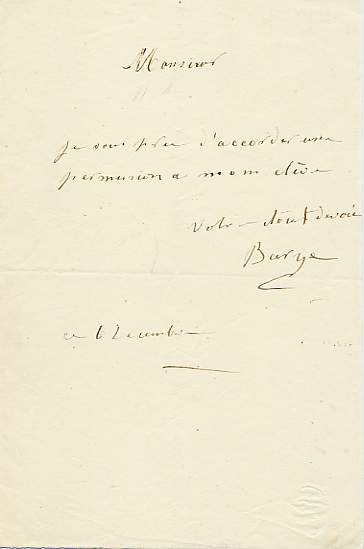 Monsieur
je vous prie d'accorder une
permission a mon élève
votre tout devoué
Barye
ce 6 Decembre